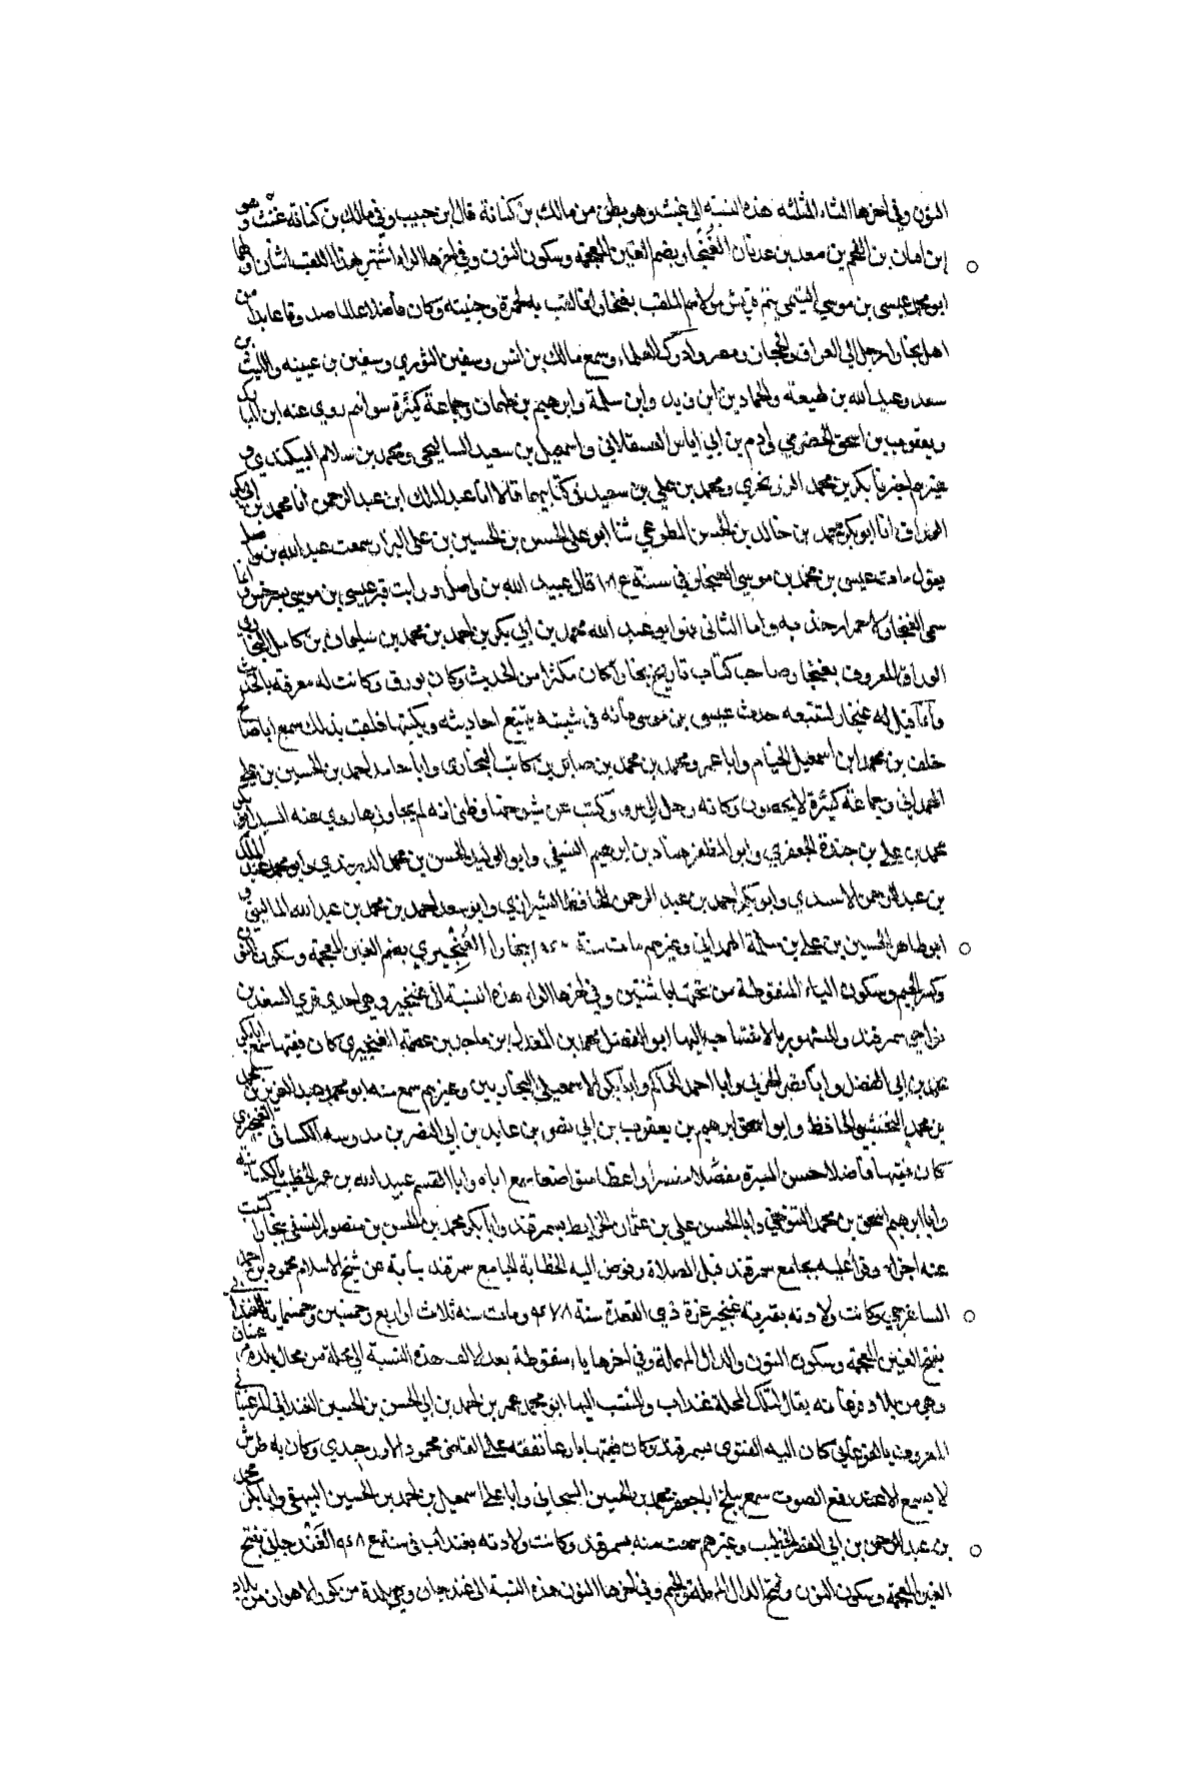 النون وفي اخرها الثاء المثلثة هذه النسبة الى غنث وهو بطن من مالك بن كنانة قال ابن حبيب وفي مالك بن كنانة غنث وهو
ابن بن القحم بن معد بن عدنان الغنجار بضم الغين المعجمة وسكون النون وفي اخرها الراء اشتهر بهذا اللقب اثنان اولهما
ابو محمد عيسى بن موسى التيمي الملقب بغنجار لقب به لحمرة وجنتيه وكان فاضلا عالما صدوقا عابدا من
اهل بخارا رحل الى العراق والحجاز ومصر وادرك العلماء وسمع مالك بن انس وسفين الثوري وسفين بن عيينه والليث بن
سعد وعبد الله بن لهيعة والحمادين ابن زيد وابن سلمة وابرهيم بن طهمان وجماعة كثيرة سواهم روى عنه ابن المبارك
ويعقوب بن اسحق الحضرمي وادم بن ابي اياس العسقلاني واسمعيل بن سعيد ومحمد بن سلام البيكندي و
غيرهم اخبرنا بكر بن محمد الزرنجري ومحمد بن علي بن سعيد في كتابيهما قالا انا عبد الملك ابن عبد الرحمن انا محمد بن ابي بكر
الوراق انا ابو بكر محمد بن خالد بن الحسن المطوعي ثنا ابو علي الحسن بن الحسين بن علي البزار سمعت عبد الله بن واصل
يقول مات عيسى بن محمد بن موسى الغنجار في سنة قال عبيد الله بن واصل ورايت قبر عيسى بن موسى بسرخس وانما
سمى الغنجار لاحمرار خديه واما الثاني فهو ابو عبد الله محمد بن ابي بكر بن احمد بن محمد بن سليمان بن كامل البخاري
الوراق المعروف بغنجار صاحب كتاب تاريخ بخارا كان مكثرا من الحديث وكان يورق وكانت له معرفة بالحديث
وانما قيل له غنجار لتتبعه حديث عيسى بن موسى فانه في شبيبته يتتبع احاديثه ويكتبها فلقب بذلك سمع ابا صالح
خلف بن محمد ابن اسمعيل الخيام وابا عمرو محمد بن محمد بن صابر بن كاتب البخاري وابا حامد احمد بن الحسين بن علي
الهمداني وجماعة كثيرة لا يحصون وكانه رحل الى مرو وكتب عن شيوخها وظني انه لم يجاوزها روى عنه السيد ابو بكر
محمد بن علي بن الجعفري وابو المظفر هناد بن ابرهيم النسفي وابو الوليد الحسن بن محمد الدربندي وابو محمد عبد الملك
بن عبد الرحمن الاسدي وابو بكر احمد بن عبد الرحمن الحافظ الشيرازي وابو سعد احمد بن محمد بن عبد الله الماليني و
ابو طاهر الحسين بن علي بن سلمة الهمداني وغيرهم مات سنة ببخارا الغنجيري بضم الغين المعجمة وسكون النون
وكسر الجيم وسكون الياء المنقوطة من تحتها باثنتين وفي اخرها الراء هذه النسبة الى غنجير وهي احدى قرى السغد من
نواحي سمرقند والمشهور بالانتساب اليها ابو الفضل محمد بن المعدل ابن ماجد بن عصمة الغنجيري كان فقيها سمع ابا بكر
محمد بن ابي الفضل وابا نصر الحربي وابا احمد الحاكم وابا بكر الاسمعيلي البخاريين وغيرهم سمع منه ابو محمد عبد العزيز بن محمد
بن محمد النخشبي الحافظ وابو اسحق ابرهيم بن يعقوب بن ابي نصر بن ابي النضر بن مدرسة الكساني الغنجيري
كان فقيها فاضلا حسن السيرة مفسرا واعظا متواضعا سمع اباه وابا القسم عبيد الله بن عمر الخطيب الكشاني
وابا ابرهيم اسحق بن محمد النوحي وابا الحسن علي بن عثمان الخراط بسمرقند وابا بكر محمد بن الحسن بن منصور النسفي ببخارا كتبت
عنه اجزاء وقرأ عليه بجامع سمرقند قبل الصلاة وفوض اليه الخطابة بجامع سمرقند نيابة عن شيخ الاسلام محمود بن احمد
الساغرجي وكانت ولادته بقرية غنجير غرة ذي القعدة سنة ٤٧٨ ومات سنة ثلاث او اربع وخمسين وخمسمائة الغندابي
بفتح الغين المعجمة وسكون النون والدال المهملة وفي اخرها باء منقوطة بعد الالف هذه النسبة الى محلة من محال بلدة مرغينان
وهي من بلاد فرغانه يقال لتلك المحلة غنداب والمنتسب اليها ابو محمد عمر بن احمد بن ابي الحسن بن الحسين الغندابي المرغيناني
المعروف بالفرغاني كان اليه الفتوى بسمرقند وكان فقيها بارعا تفقه على القاضي محمود الاوزجندي وكان به طرش
لا يسمع الا عند رفع الصوت سمع ببلخ ابا جعفر محمد بن الحسين السمنجاني وابا علي اسمعيل بن احمد بن الحسين البيهقي وابا بكر محمد
بن عبد الرحمن بن ابي القصر الخطيب وغيرهم سمعت منه بسمرقند وكانت ولادته بغنداب في سنة الغندجاني بفتح
الغين المعجمة وسكون النون وفتح الدال المهملة والجيم وفي اخرها النون هذه النسبة الى غندجان وهي بلدة من كور الاهواز من بلاد